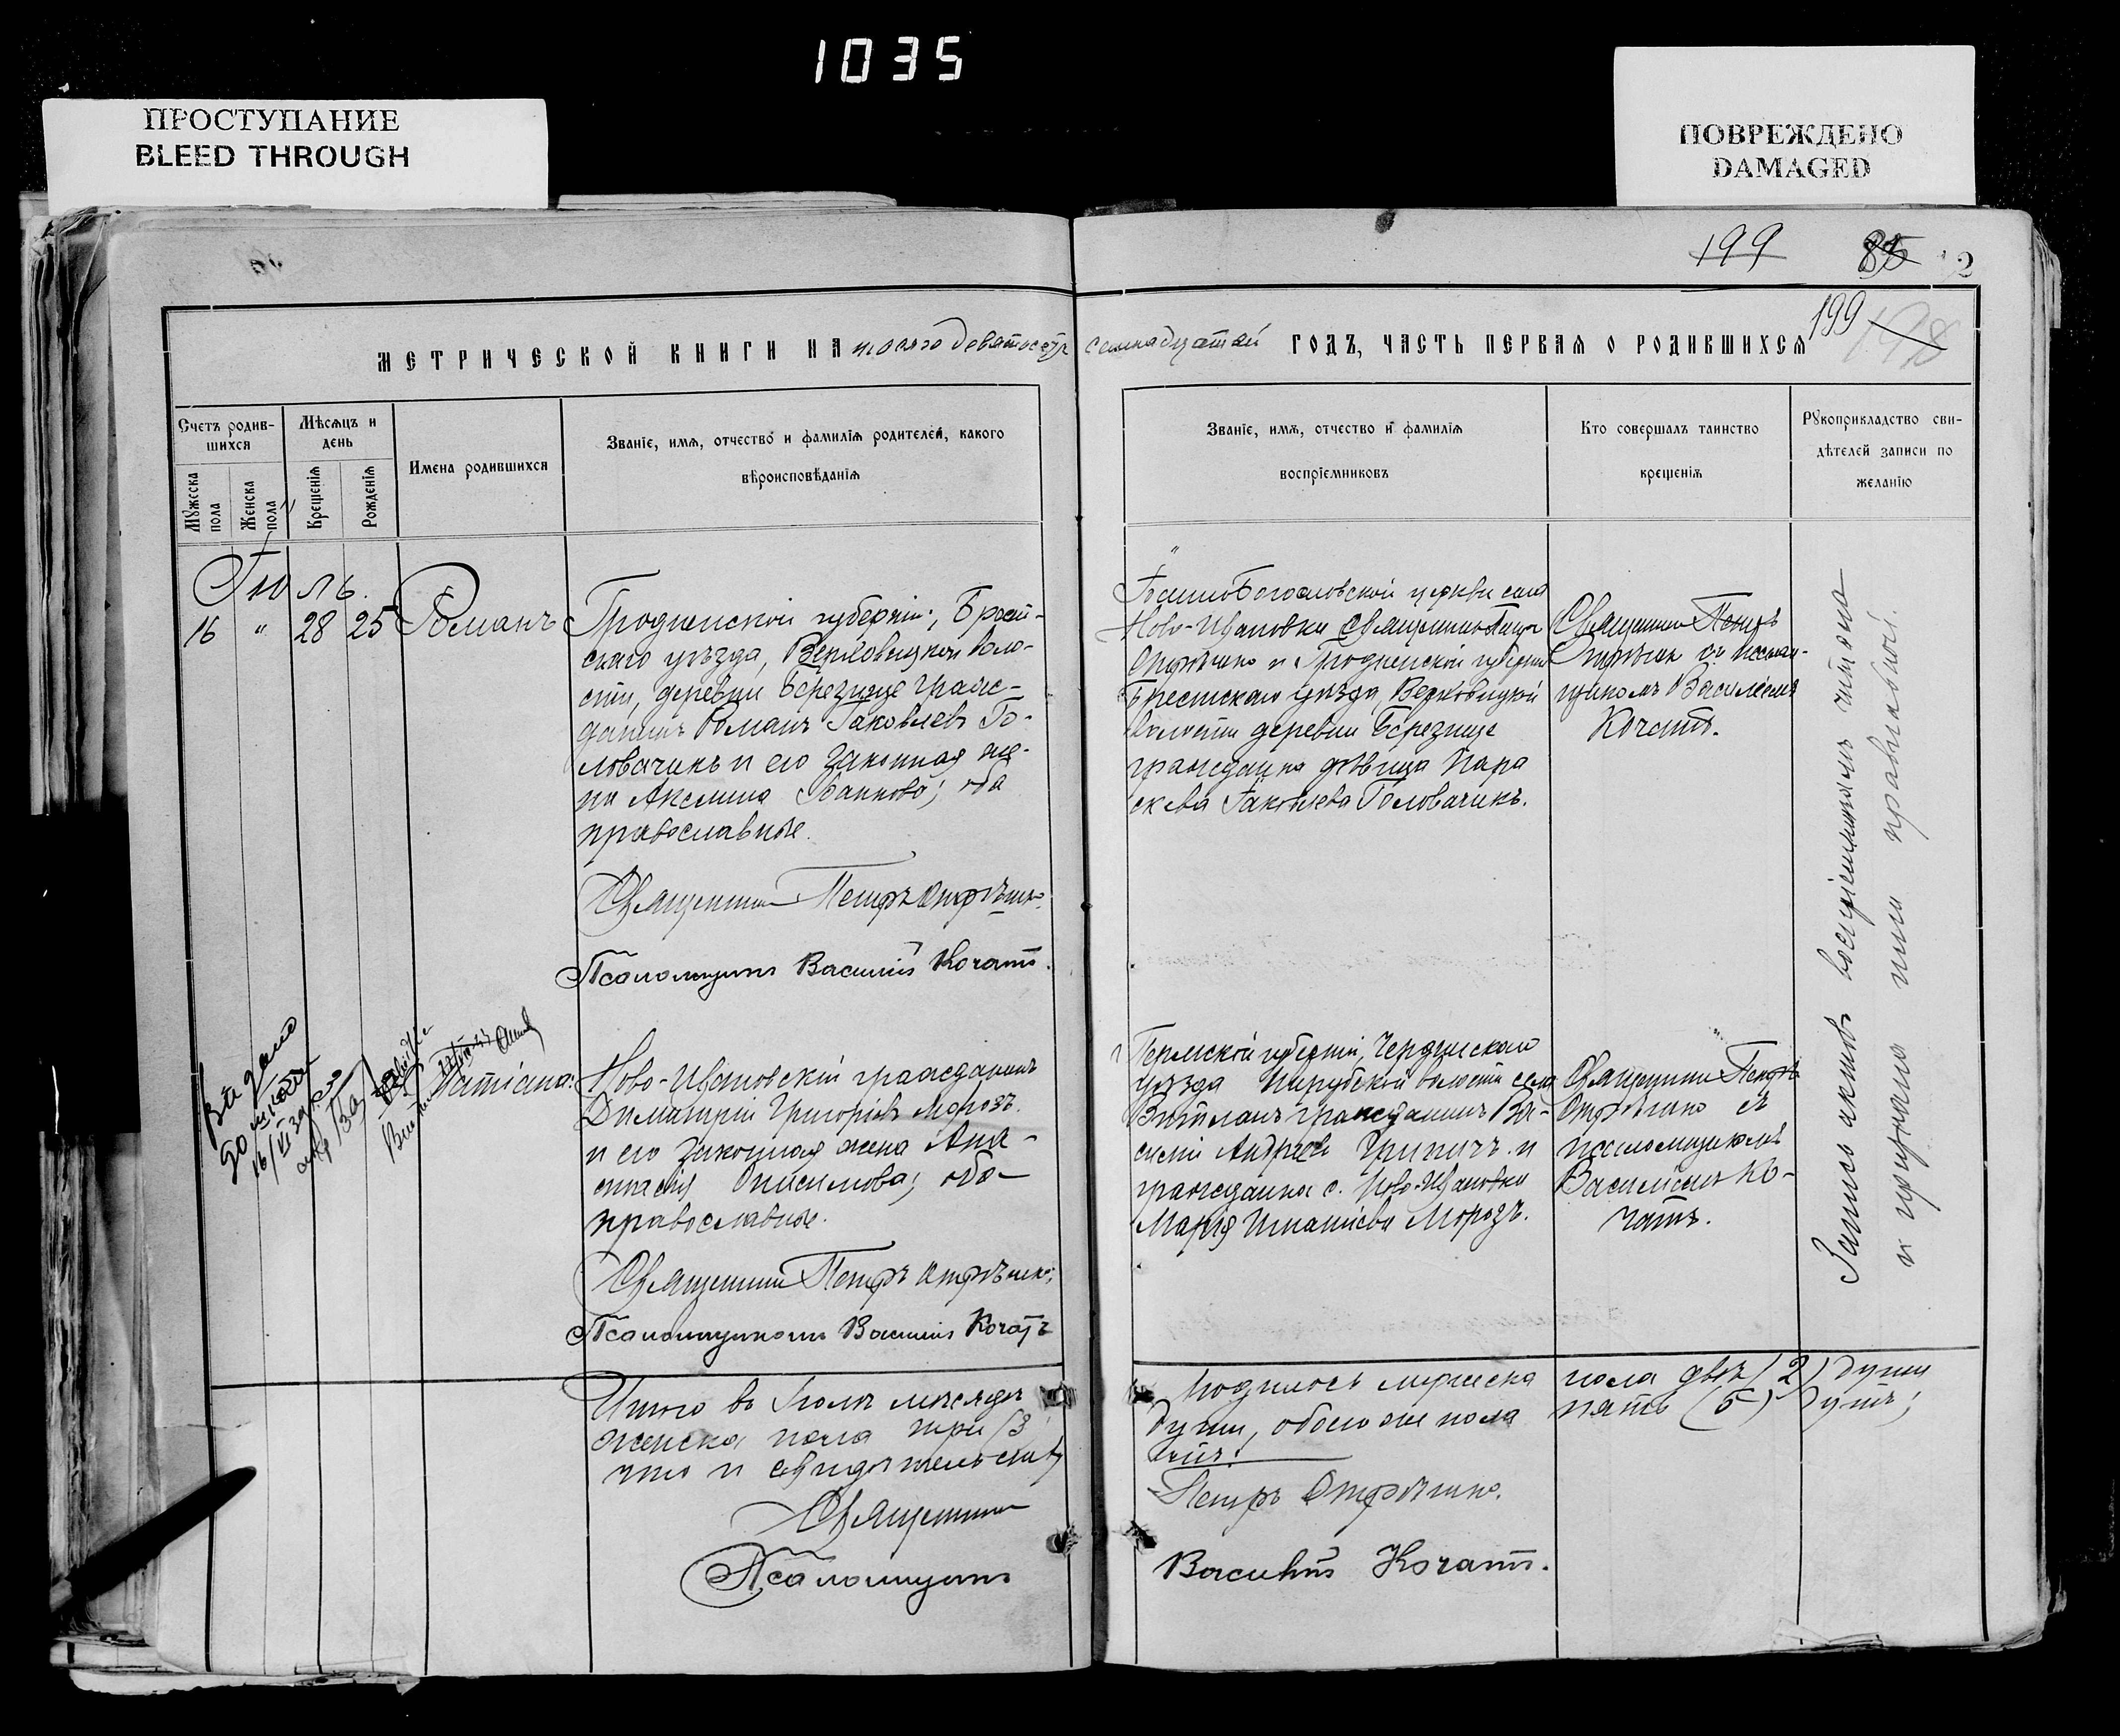 1035
ПРОСТУПАНИЕ
BLEED THROUGH
ПОВРЕЖДЕНО
DAMAGED
199 85 2
199 198
МЕТРИЧЕСКОЙ КНИГИ НА тысяча девятьсотъ семнадцатый ГОДЪ, ЧАСТЬ ПЕРВАЯ О РОДИВШИХСЯ
Счетъ родив-
шихся
Мужеска пола
Женска пола
Мѣсяцъ и
день
Крещенія
Рожденія
Имена родившихся
Званіе, имя, отчество и фамилія родителей, какого
вѣроисповѣданія
Званіе, имя, отчество и фамилія
воспріемниковъ
Кто совершалъ таинство
крещенія
Рукоприкладство сви-
дѣтелей записи по
желанію
Іюль.
16 " 28 25
Романъ
Гродненской губерніи, Брест-
скаго уѣзда, Верховицкой воло-
сти, деревни Березище граж-
данинъ Романъ Іаковлевъ Го-
ловачикъ и его законная же-
на Акилина Иванова; оба
православные.
Священникъ Петръ Отрѣшко.
Псаломщикъ Василій Кочатъ.
Іоанно-Богословской церкви села
Ново-Ивановки Священникъ Петръ
Отрѣшко и Гродненской губерніи
Брестскаго уѣзда, Верховицкой
волости деревни Березище
гражданка дѣвица Пара
скева Іаковлева Головачикъ.
Священникъ Петръ
Отрѣшко съ псалом-
щикомъ Василіемъ
Кочатъ.
Выдано
16/VI
Татіана:
Ново-Ивановскій гражданинъ
Димитрій Григорьевъ Морозъ
и его законная жена Ана-
стасія Онисимова; оба
православные.
Священникъ Петръ Отрѣшко;
Псаломщикъ Василій Кочатъ
Пермской губерніи, Чердынскаго
уѣзда волости села
гражданинъ Ва-
силій Андреевъ и
гражданка с. Ново-Ивановки
Марія Игнатіева Морозъ.
Священникъ Петръ
Отрѣшко съ
псаломщикомъ
Василіемъ Ко-
чатъ.
Запись актовъ воспріемникамъ читана
и признана ими правильной.
Итого въ Іюлѣ мѣсяцѣ родилось мужеска пола двѣ (2) души
женска пола три (3) души, обоего же пола пять (5) душъ;
что и свидѣтельству
емъ:
Священникъ Петръ Отрѣшко.
Псаломщикъ Василій Кочатъ.